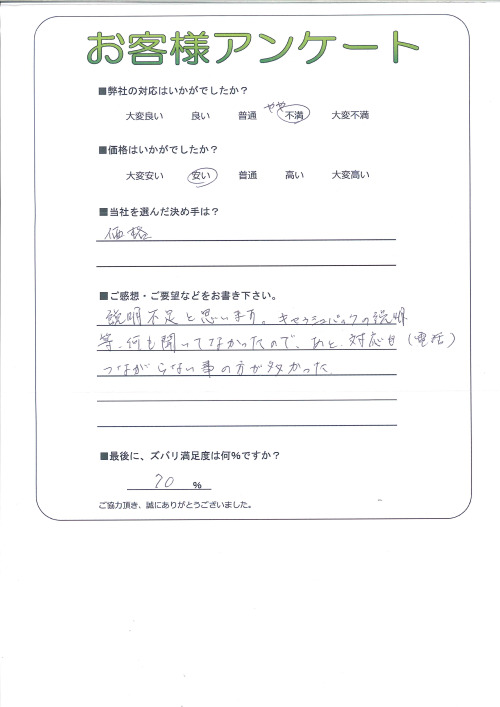 お客様アンケート
■弊社の対応はいかがでしたか？
大変良い 良い 普通 やや 不満 大変不満
■価格はいかがでしたか？
大変安い 安い 普通 高い 大変高い
■当社を選んだ決め手は？
価格
■ご感想・ご要望などをお書き下さい。
説明不足と思います。キャッシュバックの説明
等、何も聞いてなかったので、あと、対応も(電話)
つながらない事の方が多かった
■最後に、ズバリ満足度は何%ですか？
70 %
ご協力頂き、誠にありがとうございました。